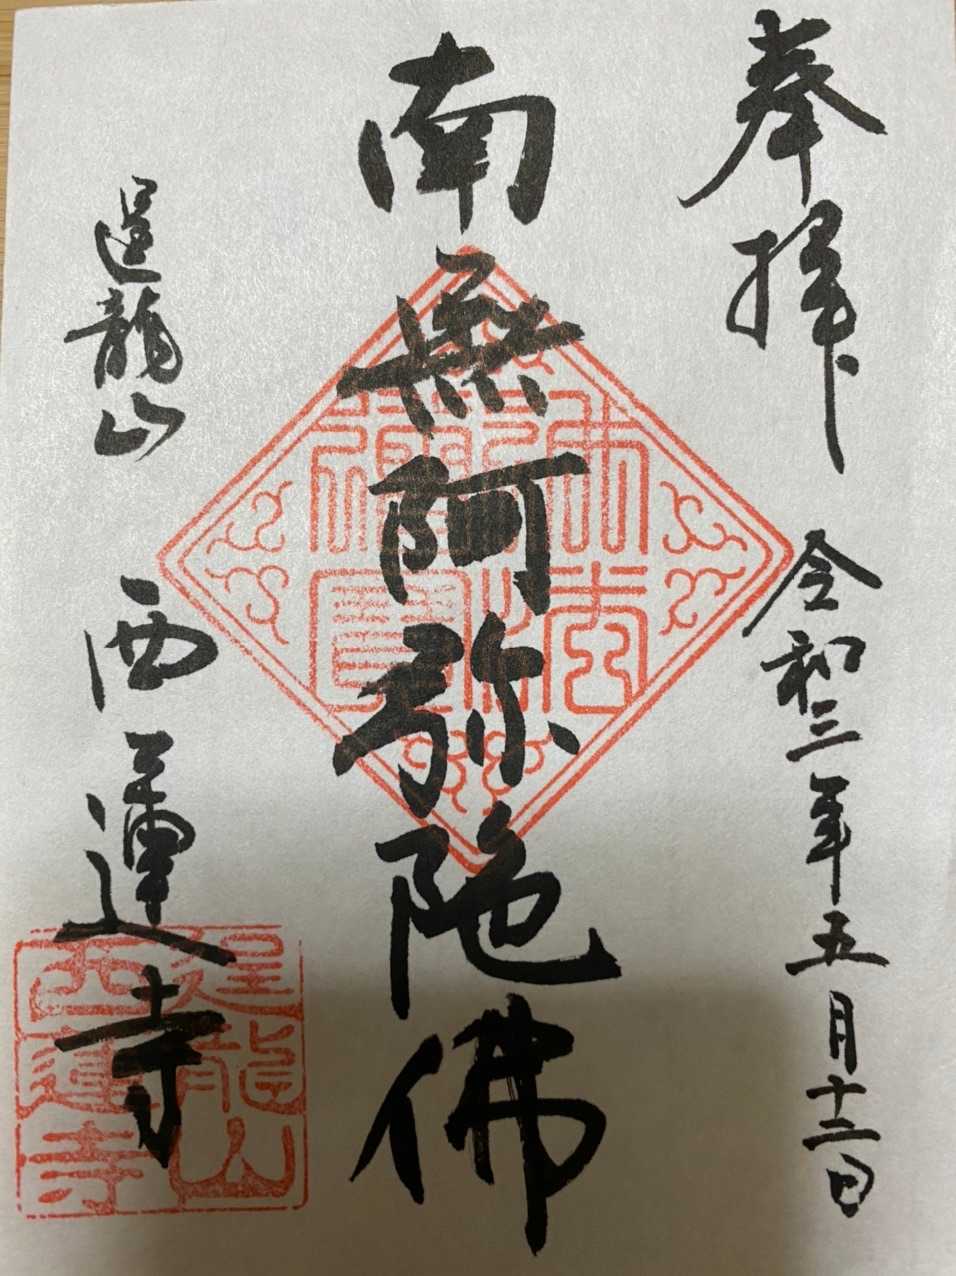 奉拝 令和三年五月十二日
南無阿弥陀佛
佛法僧寶
逞龍山 西蓮寺
逞龍山
西蓮寺